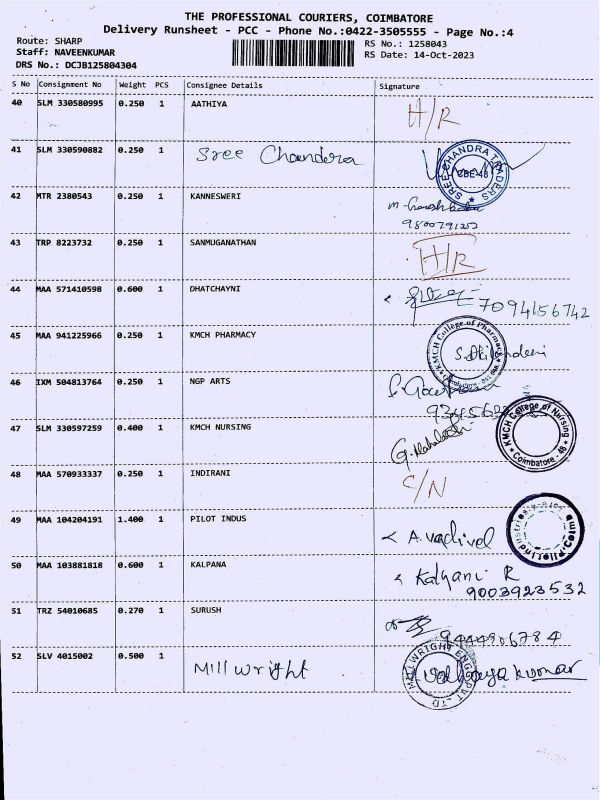 THE PROFESSIONAL COURIERS, COIMBATORE
Delivery Runsheet - PCC - Phone No.:0422-3505555 - Page No.:4
Route: SHARP
RS No.: 1258043
Staff: NAVEENKUMAR
RS Date: 14-Oct-2023
DRS No.: DCJB125804304
S No Consignment No Weight PCS Consignee Details Signature
40 SLM 330580995 0.250 1 AATHIYA H/R
41 SLM 330590882 0.250 1 Sree Chandera
SREE CHANDRA TRADERS CBE-48
42 MTR 2380543 0.250 1 KANNESWERI
9800791353
43 TRP 8223732 0.250 1 SANMUGANATHAN H/R
44 MAA 571410598 0.600 1 DHATCHAYNI 7094156742
45 MAA 941225966 0.250 1 KMCH PHARMACY
KMCH College of Pharmacy
46 IXM 504813764 0.250 1 NGP ARTS
47 SLM 330597259 0.400 1 KMCH NURSING
KMCH College of Nursing Coimbatore - 48
48 MAA 570933337 0.250 1 INDIRANI C/N
49 MAA 104204191 1.400 1 PILOT INDUS A. vadivel
50 MAA 103881818 0.600 1 KALPANA Kalyani R
9003923532
51 TRZ 54010685 0.270 1 SURUSH
9444906784
52 SLV 4015002 0.500 1 Mill wright